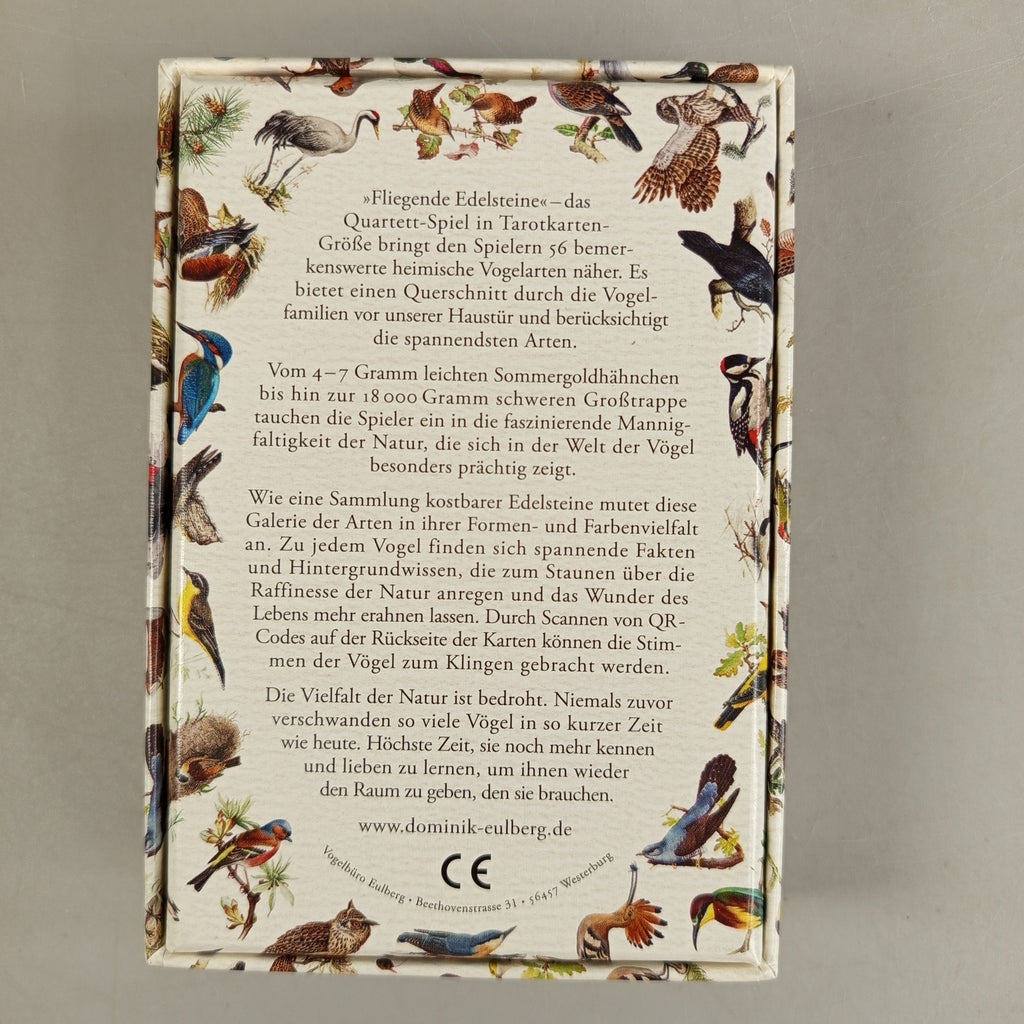 »Fliegende Edelsteine« – das
Quartett-Spiel in Tarotkarten-
Größe bringt den Spielern 56 bemer-
kenswerte heimische Vogelarten näher. Es
bietet einen Querschnitt durch die Vogel-
familien vor unserer Haustür und berücksichtigt
die spannendsten Arten.
Vom 4 – 7 Gramm leichten Sommergoldhähnchen
bis hin zur 18 000 Gramm schweren Großtrappe
tauchen die Spieler ein in die faszinierende Mannig-
faltigkeit der Natur, die sich in der Welt der Vögel
besonders prächtig zeigt.
Wie eine Sammlung kostbarer Edelsteine mutet diese
Galerie der Arten in ihrer Formen- und Farbenvielfalt
an. Zu jedem Vogel finden sich spannende Fakten
und Hintergrundwissen, die zum Staunen über die
Raffinesse der Natur anregen und das Wunder des
Lebens mehr erahnen lassen. Durch Scannen von QR-
Codes auf der Rückseite der Karten können die Stim-
men der Vögel zum Klingen gebracht werden.
Die Vielfalt der Natur ist bedroht. Niemals zuvor
verschwanden so viele Vögel in so kurzer Zeit
wie heute. Höchste Zeit, sie noch mehr kennen
und lieben zu lernen, um ihnen wieder
den Raum zu geben, den sie brauchen.
www.dominik-eulberg.de
CE
Vogelbüro Eulberg • Beethovenstrasse 31 • 56457 Westerburg